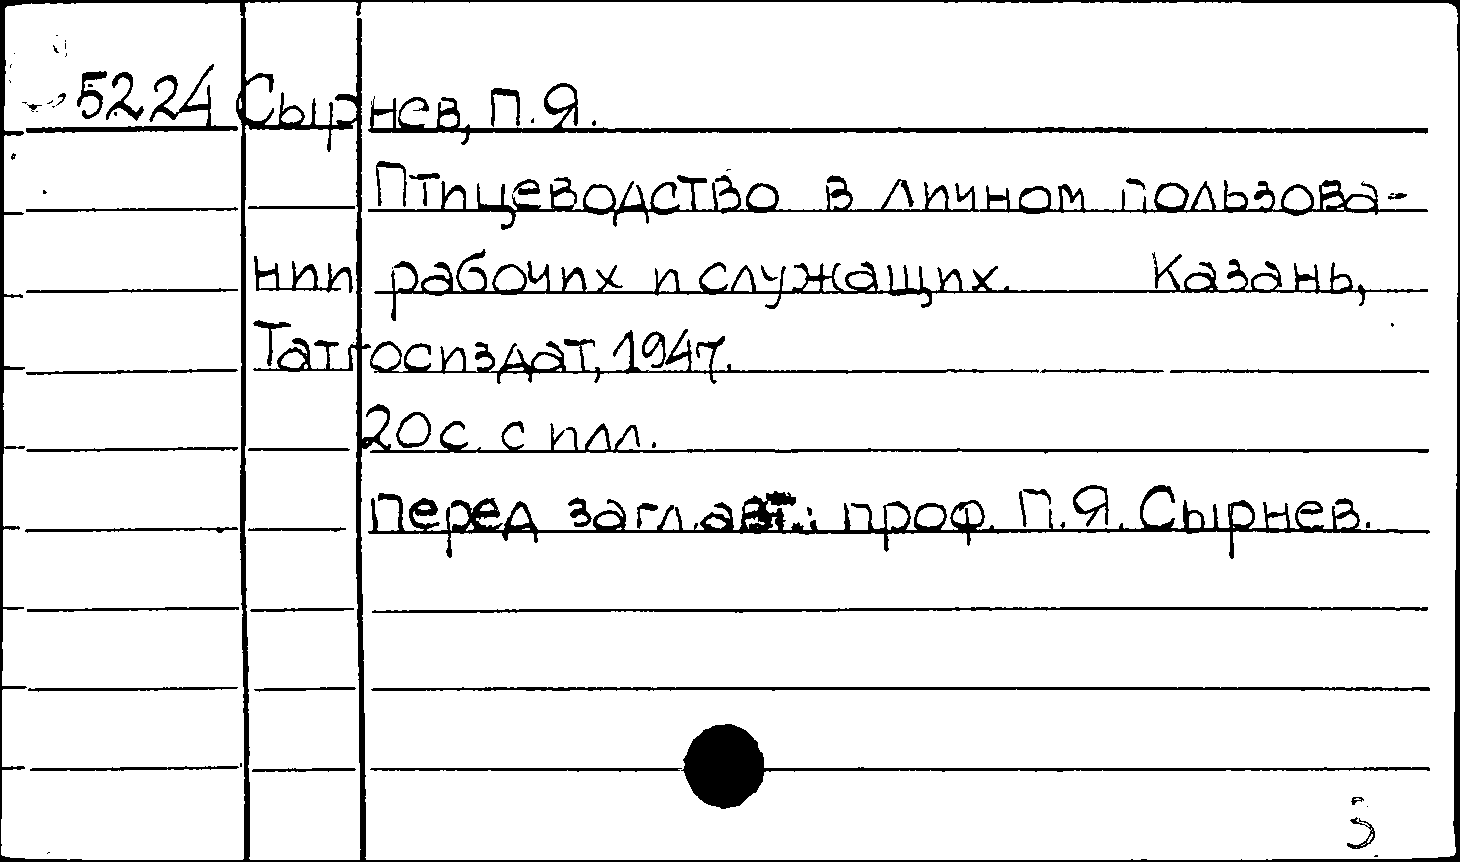 5224 Сырнев, П.Я.
Птицеводство в личном пользова-
нии рабочих и служащих. Казань,
Татгосиздат, 1947.
20 с. с илл.
перед загл. авт.: проф. П.Я. Сырнев.